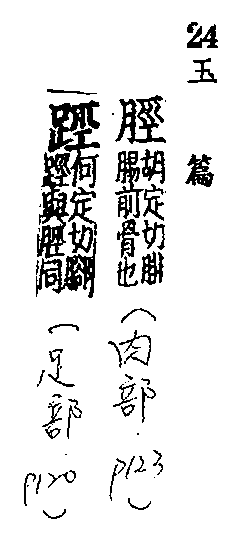 24玉篇
脛胡定切腓腸前骨也(肉部.P123)
踁何定切腳踁與脛同(足部.P120)